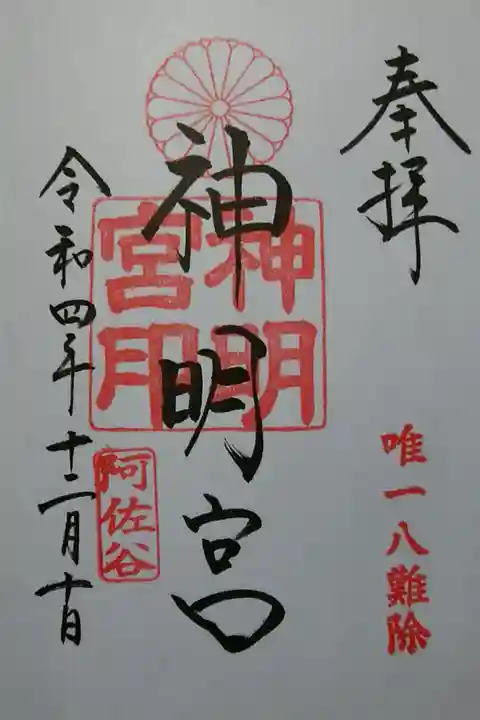 奉拝
唯一八難除
神明宮
神明宮印
阿佐谷
令和四年十二月十日